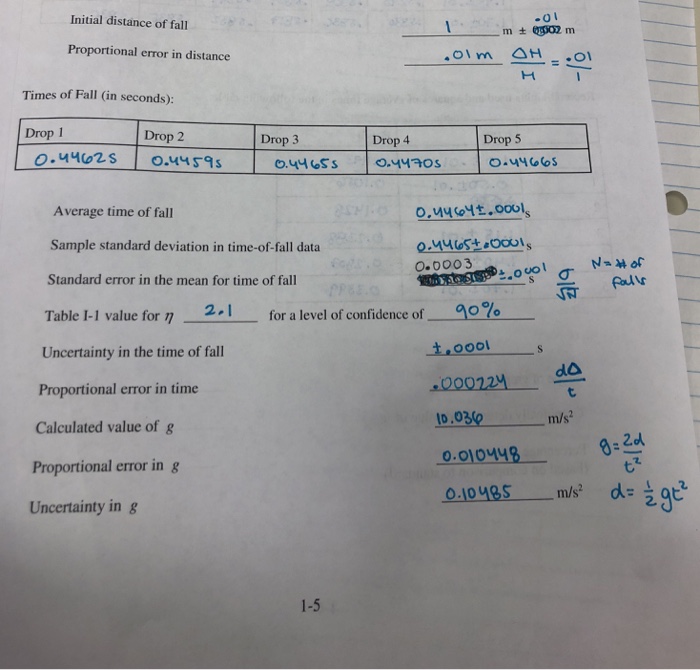 Initial distance of fall 1 m ± .01 m
Proportional error in distance .01m ΔH/H = .01/1
Times of Fall (in seconds):
Drop 1 Drop 2 Drop 3 Drop 4 Drop 5
0.4462s 0.4459s 0.4465s 0.4470s 0.4466s
Average time of fall 0.4464±.0001 s
Sample standard deviation in time-of-fall data 0.4465±.0001 s
Standard error in the mean for time of fall 0.0003 ±.0001 s σ/√N N = # of falls
Table I-1 value for η 2.1 for a level of confidence of 90%
Uncertainty in the time of fall ±.0001 s
Proportional error in time .000224 dΔ/t
Calculated value of g 10.036 m/s²
Proportional error in g 0.010448 g=2d/t²
Uncertainty in g 0.10485 m/s² d=½gt²
1-5